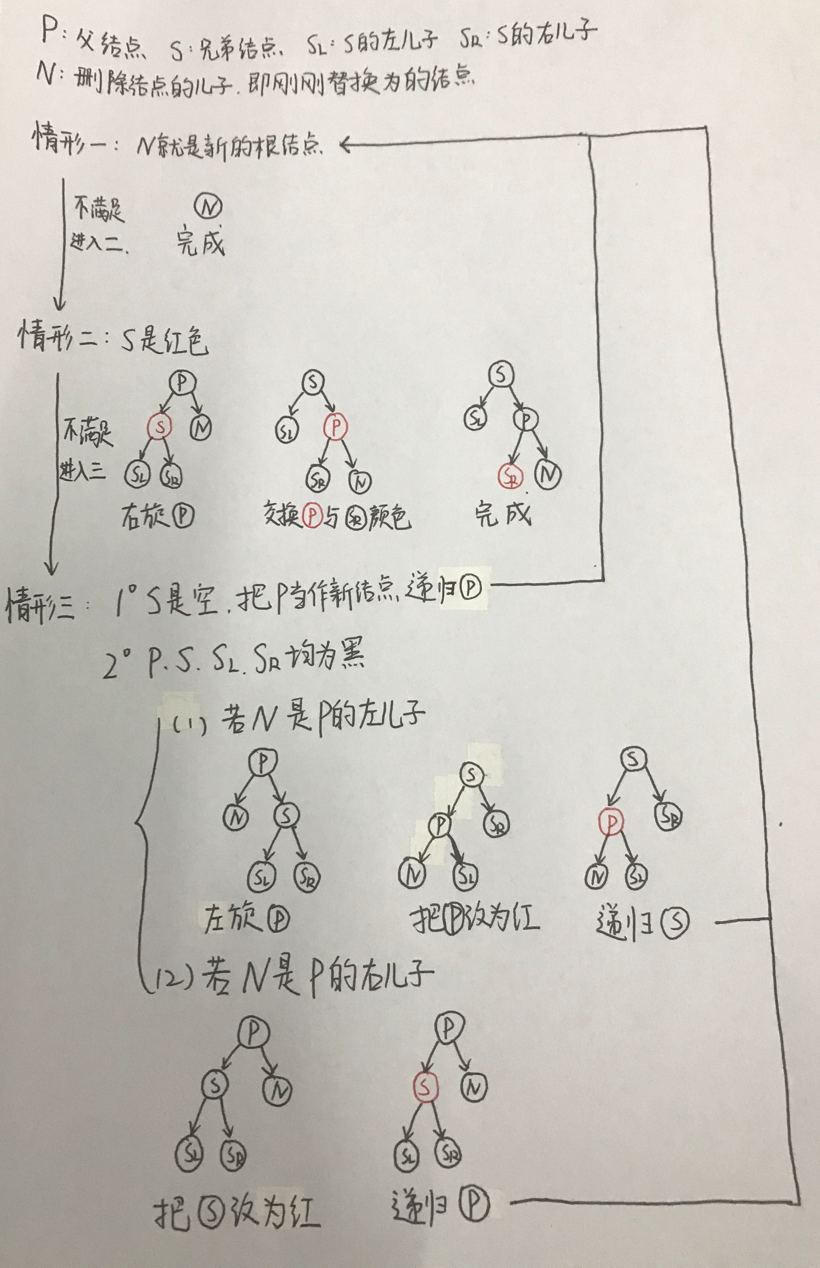 P：父结点 S：兄弟结点、SL：S的左儿子 SR：S的右儿子
N：删除结点的儿子.即刚刚替换为的结点
情形一：N就是新的根结点.
不满足
进入二.
N
完成
情形二：S是红色
不满足
进入三
P
S N
SL SR
右旋P
S
SL P
SR N
交换P与SR颜色
S
SL P
SR N
完成
情形三：1° S是空.把P当作新结点递归P
2° P.S.SL.SR均为黑
(1) 若N是P的左儿子
P
N S
SL SR
左旋P
S
P SR
N SL
把P改为红
S
P SR
N SL
递归S
(2) 若N是P的右儿子
P
S N
SL SR
把S改为红
P
S N
SL SR
递归P